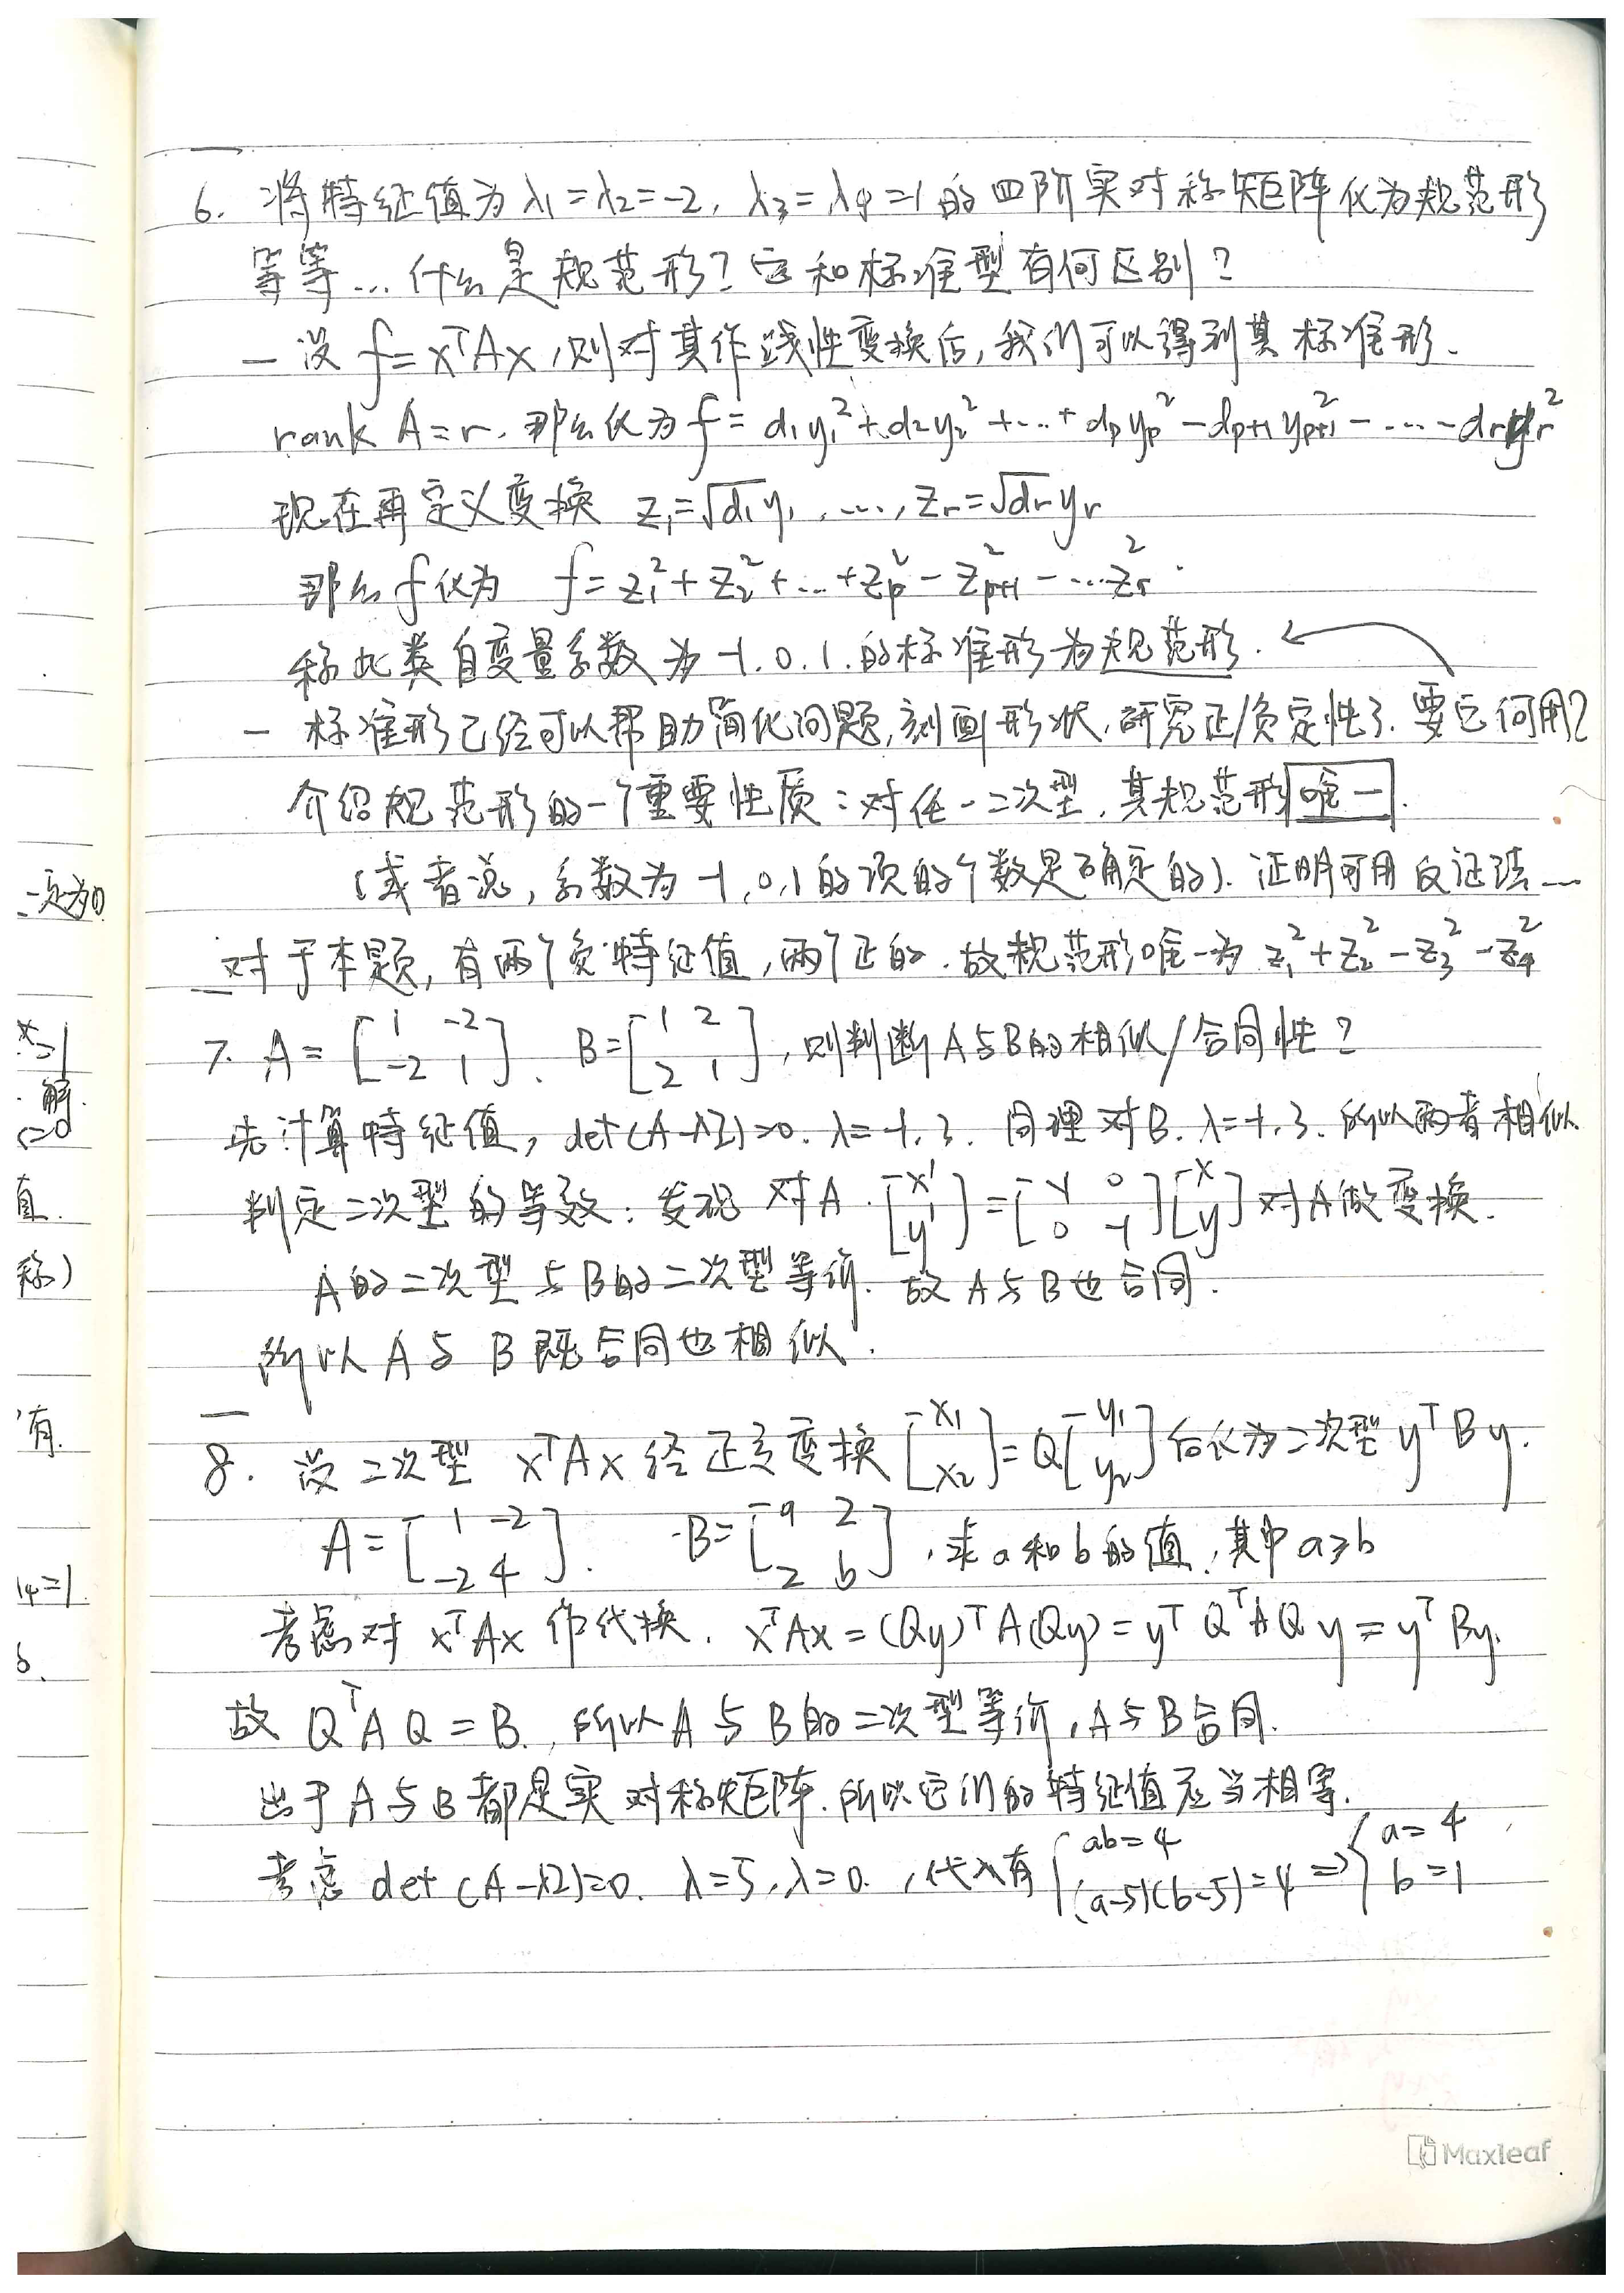 6. 将特征值为 λ1=λ2=-2, λ3=λ4=1 的四阶实对称矩阵化为规范形
等等... 什么是规范形? 它和标准型有何区别?
一 设 f=xᵀAx, 则对其作线性变换后, 我们可以得到其标准形.
rank A=r. 那么化为 f= d1y1²+d2y2²+...+dpyp²-dp+1yp+1²-...-dryr²
现在再定义变换 z1=√d1 y1, ..., zr=√dr yr
那么 f 化为 f= z1²+z2²+...+zp²-zp+1²-...zr²
称此类自变量系数为 -1.0.1.的标准形为规范形.
一 标准形已经可以帮助简化问题,刻画形状,研究正/负定性了. 要它何用?
介绍规范形的一个重要性质: 对任一二次型, 其规范形唯一.
(或者说, 系数为 -1,0,1 的项的个数是确定的). 证明可用反证法...
二定为0
对于本题, 有两个负特征值, 两个正的. 故规范形唯一为 z1²+z2²-z3²-z4²
7. A=[1 -2
-2 1]. B=[1 2
2 1], 则判断A与B的相似/合同性?
解.
先计算特征值, det(A-λI)=0. λ=-1,3. 同理对B. λ=-1,3. 所以两者相似.
直.
判定二次型的等效: 发现 对A. [x'
y']=[-1 0
0 -1][x
y] 对A做变换.
称)
A的二次型与B的二次型等价. 故A与B也合同.
所以A与B既合同也相似.
有.
8. 设二次型 xᵀAx 经正交变换[x1
x2]=Q[y1
y2]后化为二次型 yᵀBy.
A=[1 -2
-2 4]. B=[a 2
2 b], 求a和b的值, 其中a≥b
考虑对 xᵀAx 作代换. xᵀAx=(Qy)ᵀA(Qy)=yᵀQᵀAQy=yᵀBy.
故 QᵀAQ=B. 所以A与B的二次型等价, A与B合同.
出于A与B都是实对称矩阵. 所以它们的特征值应当相等.
考虑 det(A-λI)=0. λ=5, λ=0., 代入有{ab=4
(a-5)(b-5)=4 ⇒{a=4
b=1
Maxleaf